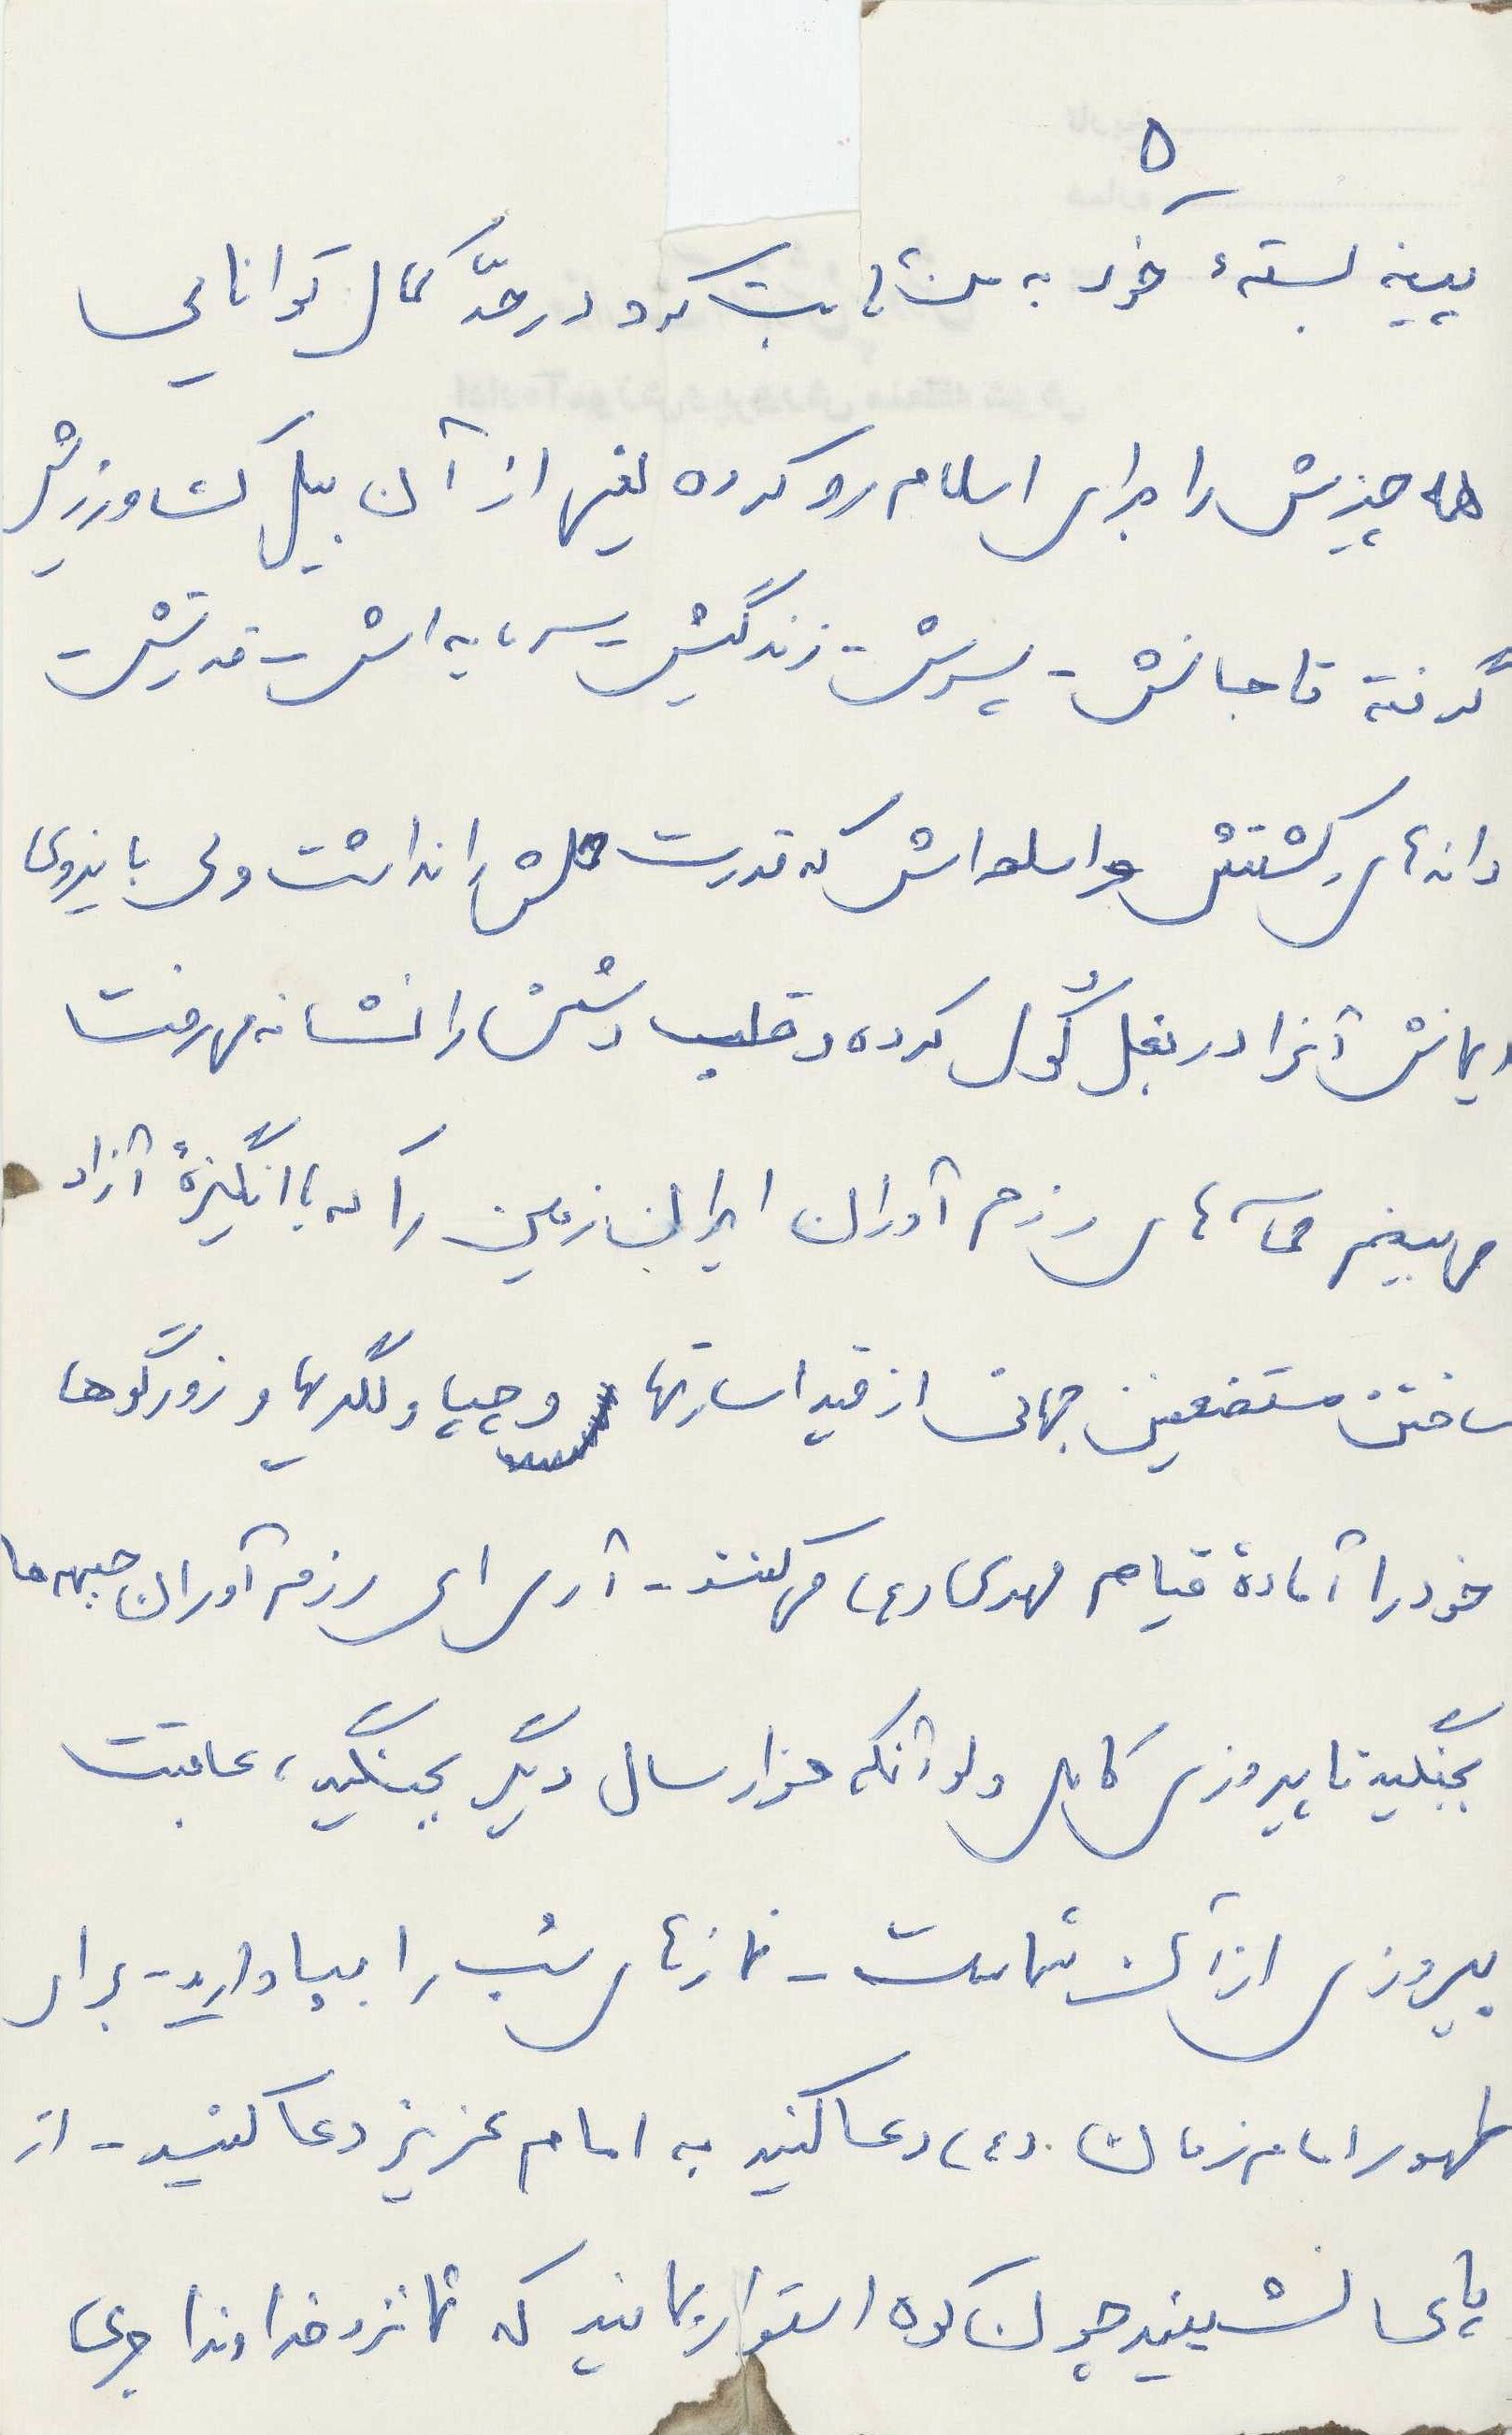 ۵
پینه بستهٔ خود به من ثابت کرد در حدّ کمال توانایی
همه چیزش را برای اسلام رو کرده یعنی از آن بیل کشاورزیش
گرفته تا جانش - پسرش - زندگیش - سرمایه اش - قدرتش -
دانه های کشتش و اسلحه اش که قدرت را نداشت ولی با نیروی
ایمانش آنرا در بغل گول کرده و قلب دشمن را نشانه میرفت
می بینم حماسه های رزم آوران ایران زمین را که با انگیزهٔ آزاد
ساختن مستضعفین جهان از قید اسارتها و چپاولگریها و زورگوها
خود را آمادهٔ قیام مهدی (ع) می کنند - آری ای رزم آوران جبهه ها
بجنگید تا پیروزی کامل ولو آنکه هزار سال دیگر بجنگید، عاقبت
پیروزی از آن شماست - نمازهای شب را بپا دارید - برای
ظهور امام زمان (ع) دعا کنید به امام عزیز دعا کنید - از
پای ننشینید چون کوه استوار بمانید که شما نزد خداوند اجری